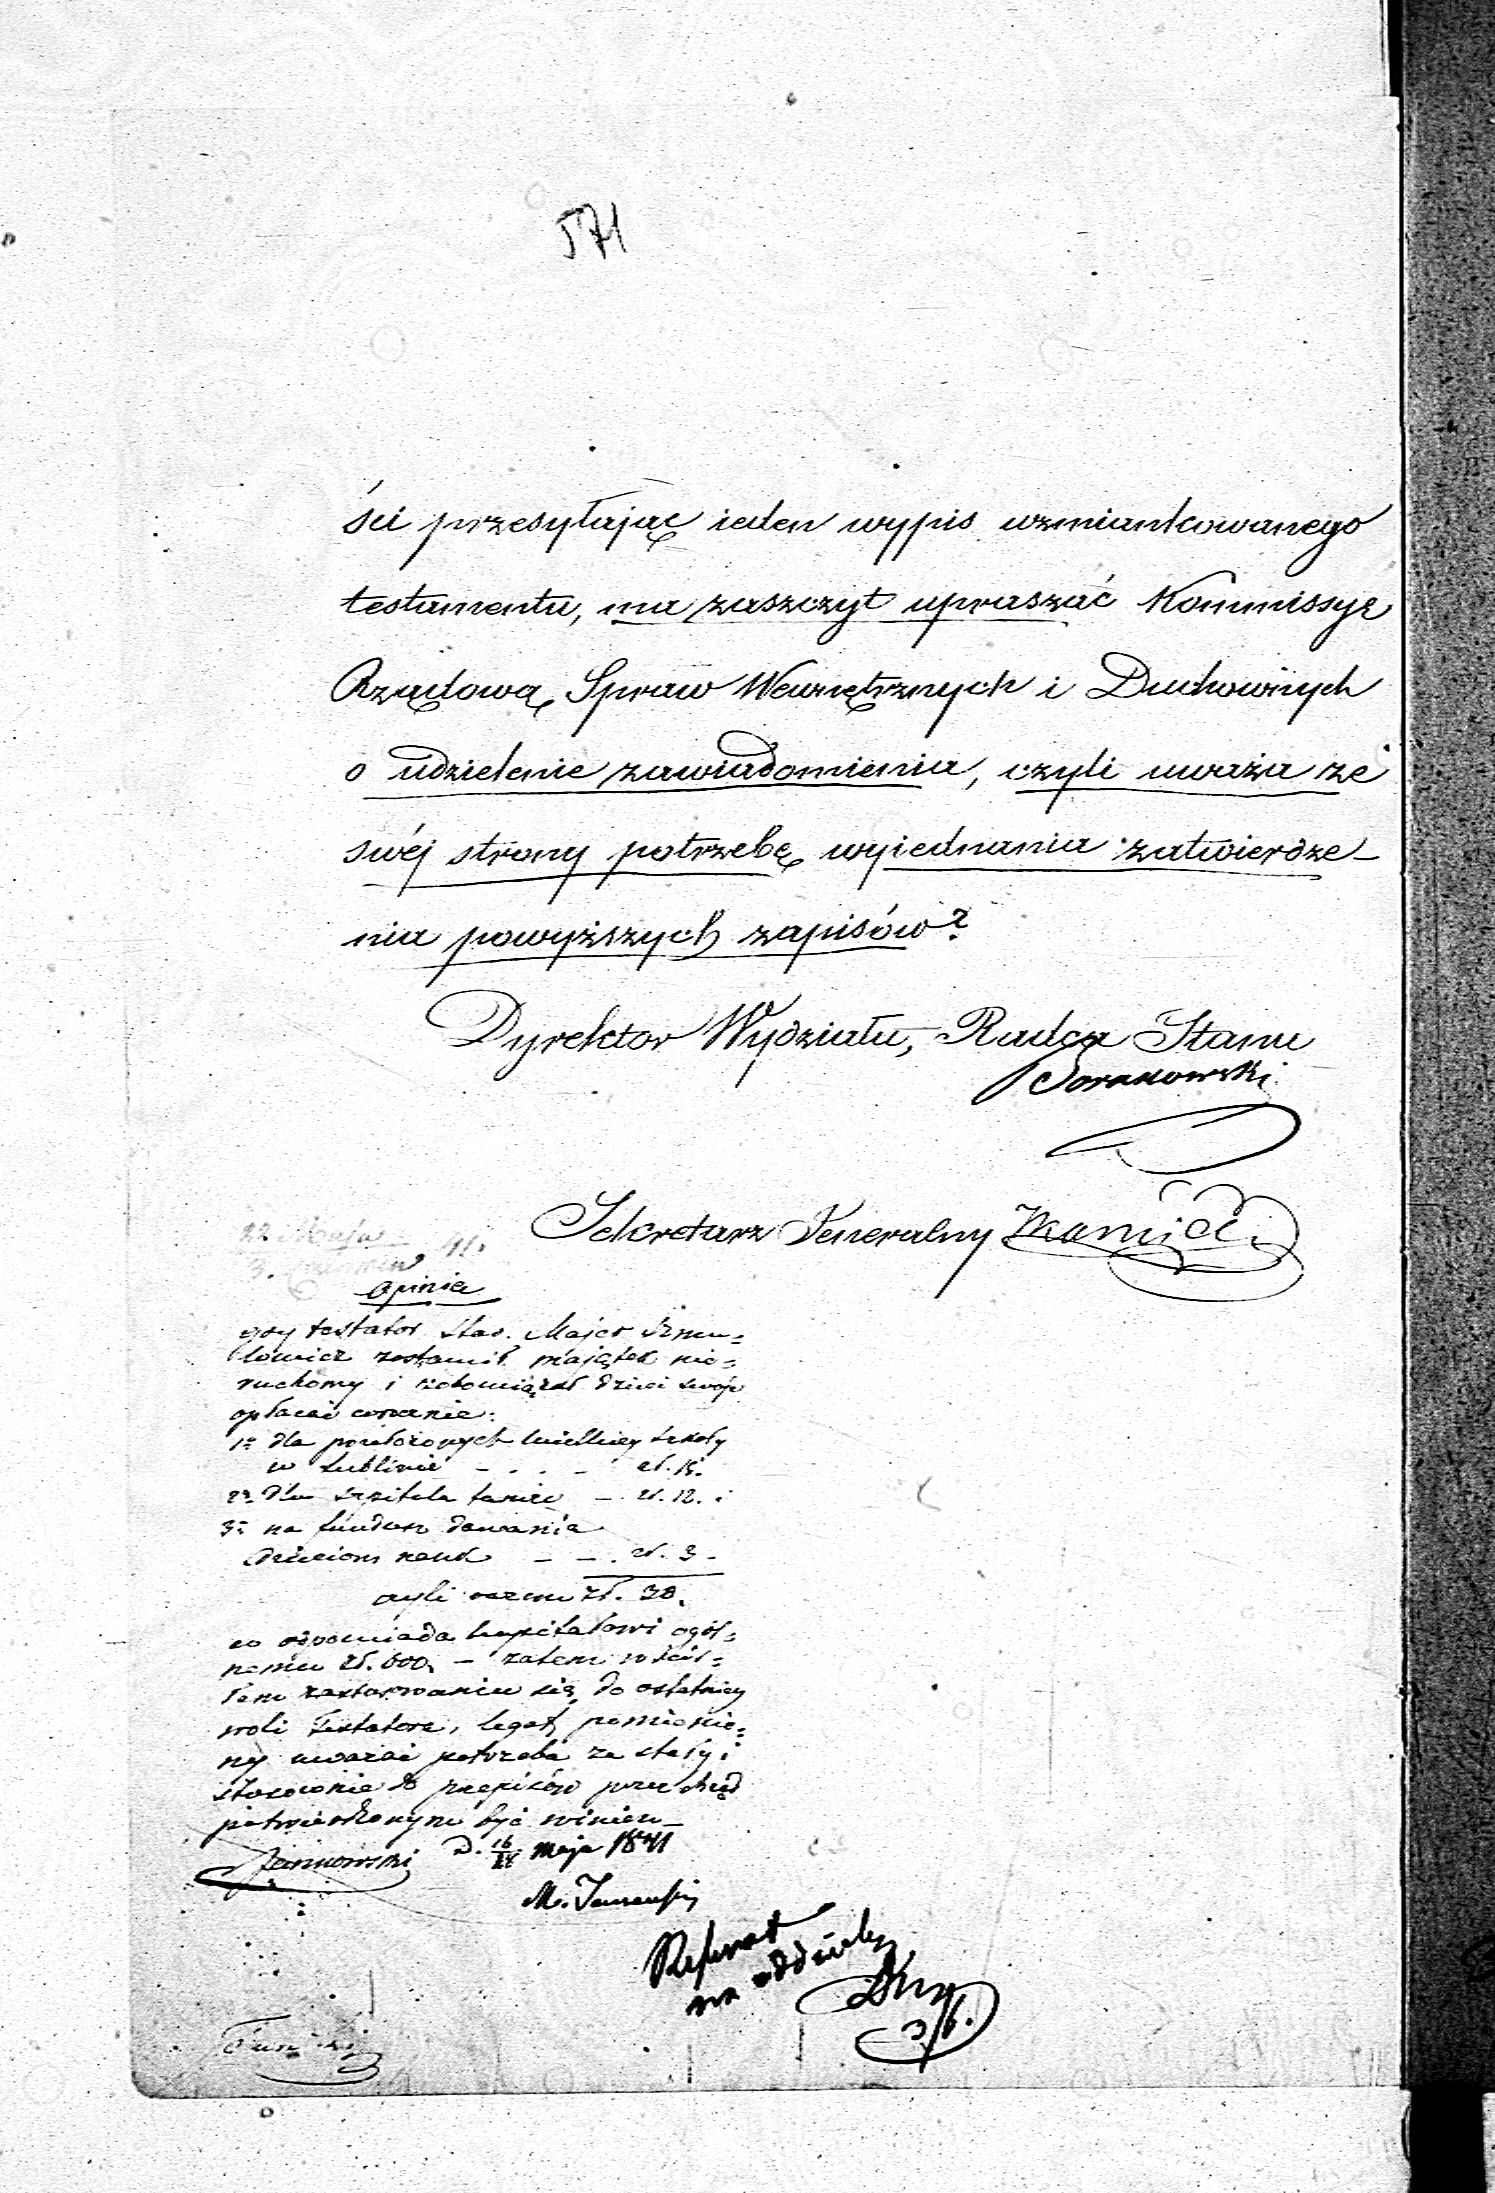 571
ści przesyłając ieden wypis wzmiankowanego
testamentu, ma zaszczyt upraszać Kommissyę
Rządową Spraw Wewnętrznych i Duchownych
o udzielenie zawiadomienia, czyli uważa ze
swéj strony potrzebę wyiednania zatwierdze-
nia powyższych zapisów?
Dyrektor Wydziału, Radca Stanu
Sekretarz Jeneralny
22 Maja 41.
Opinia
gdy testator Star. Majer Szmu=
lowicz zostawił majątek nie=
ruchomy i zobowiązał dzieci swoje
opłacać corocznie:
1º dla przełożonych wielkiey szkoły
w Lublinie - . . - zł. 15.
2º dla szpitala tamże - zł. 12. i
3º na fundusz dawania
dzieciom nauk - - . zł. 3 -
czyli razem zł. 30.
co odpowiada kapitałowi ogól=
nemu zł. 600. - zatem w ści=
słem zastosowaniu się do ostatniey
woli Testatora, legat pomienio=
ny uważać potrzeba za stały i
stosownie do przepisów przez Rząd
potwierdzonym być winien -
D. 16/28 maja 1841
Referat
na oddziel
3/6.